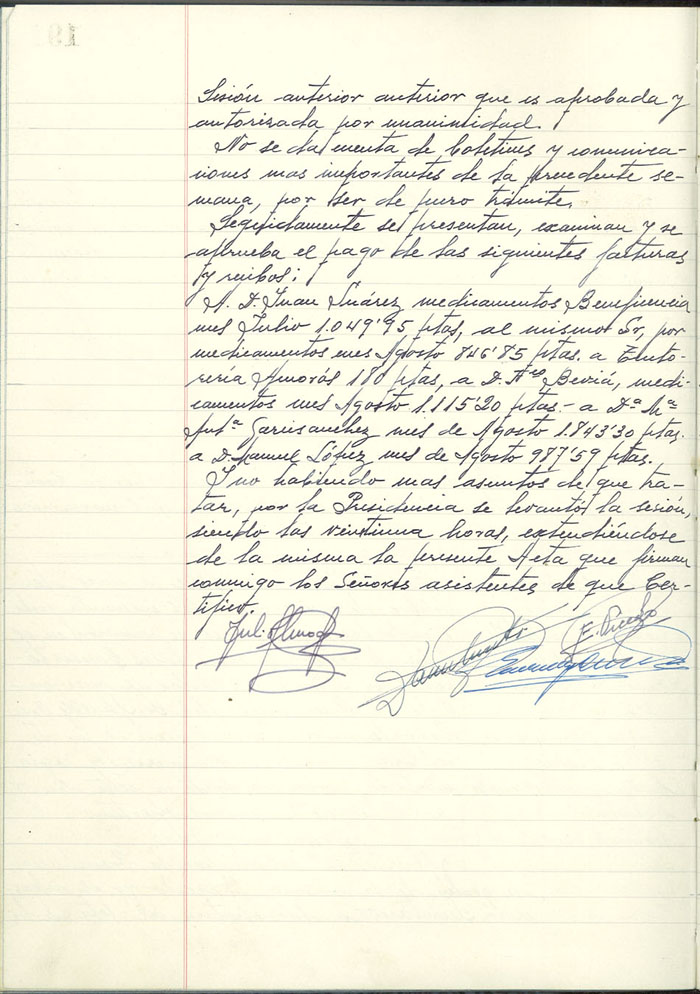 Sesión anterior anterior que es aprobada y
autorizada por unanimidad.
No se da cuenta de Boletines y comunica-
ciones mas importantes de la precedente se-
mana, por ser de puro trámite.
Seguidamente se presentan, examinan y se
aprueba el pago de las siguientes facturas
y recibos:
A. D. Juan Suárez medicamentos Beneficencia
mes Julio 1.049'95 ptas, al mismo Sr, por
medicamentos mes Agosto 846'85 ptas. a Tinto-
rería Amorós 180 ptas, a D. Beviá, medi-
camentos mes Agosto 1.115'20 ptas.- a Dª Mª
Garrisanchez mes de Agosto 1.843'30 ptas.
a D. Manuel López mes de Agosto 987'59 ptas.
Y no habiendo mas asuntos de que tra-
tar, por la Presidencia se levantó la sesión,
siendo las veintiuna horas, extendiéndose
de la misma la presente Acta que firman
conmigo los Señores asistentes de que Cer-
tifico.